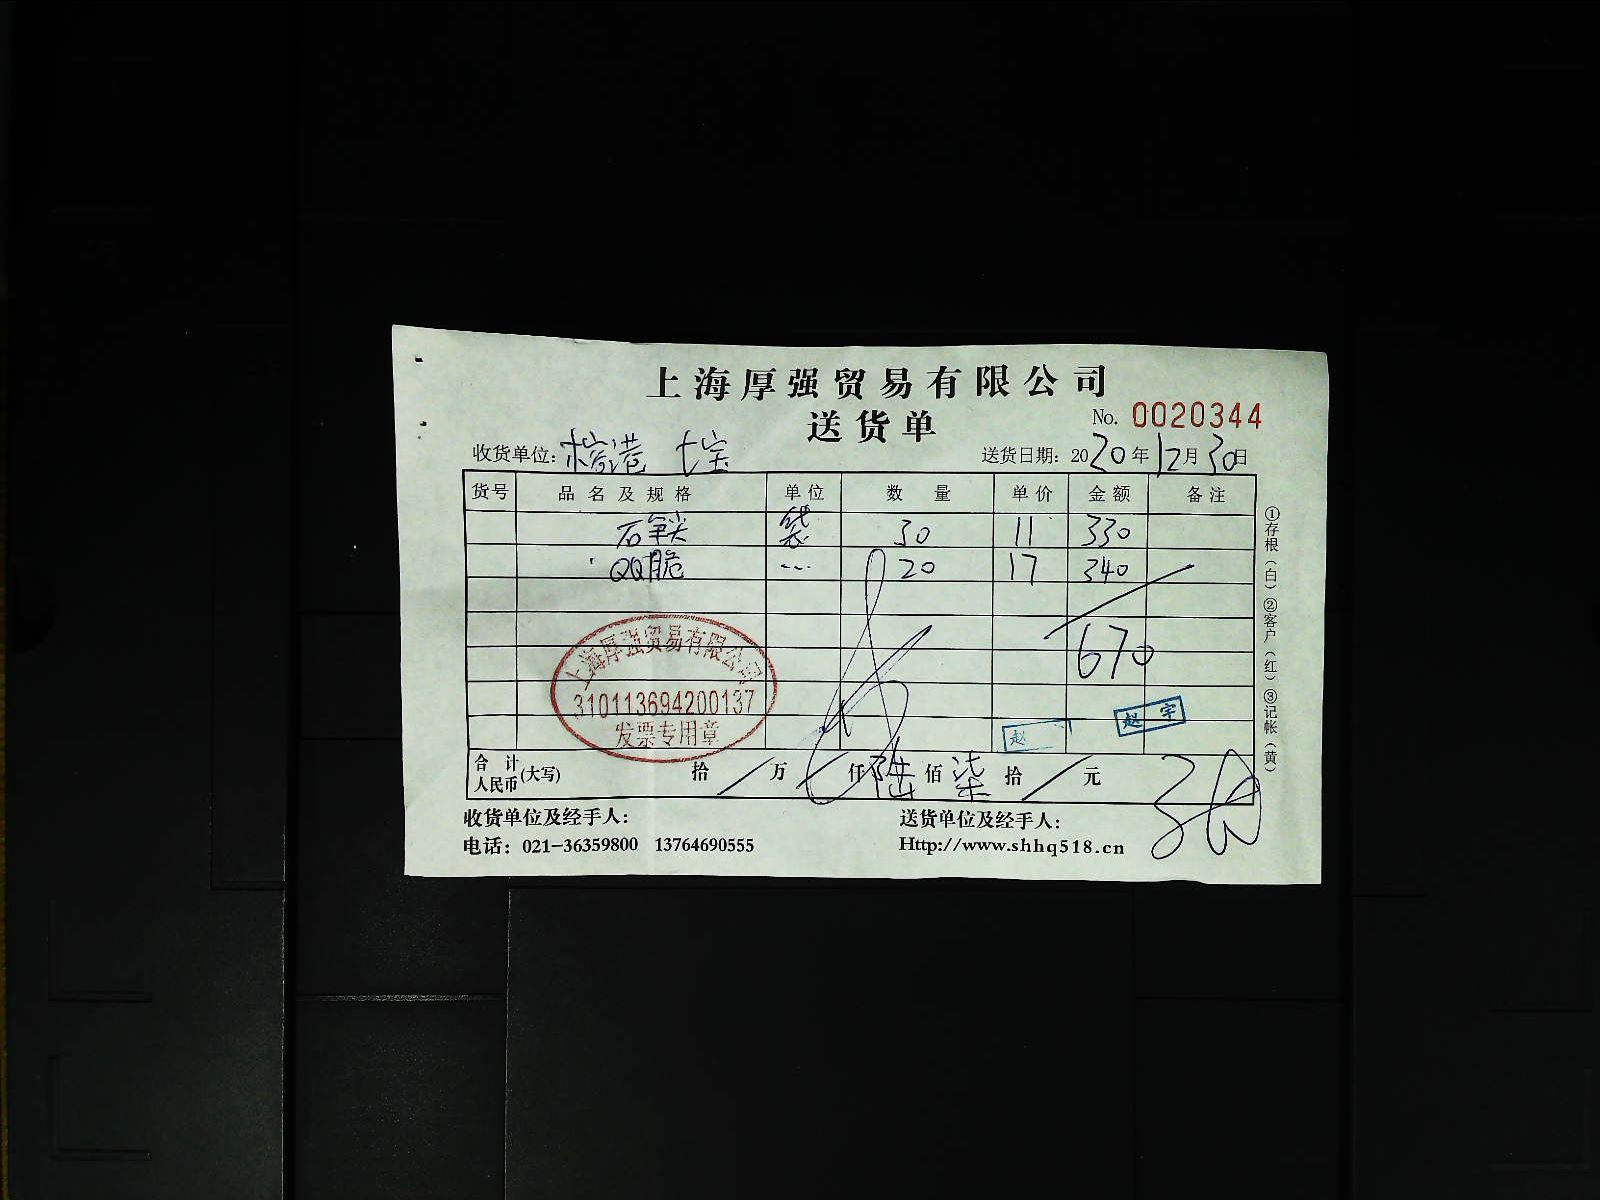 上海厚强贸易有限公司
送货单
No. 0020344
收货单位：榕港 七宝
送货日期：2020年12月30日
货号 品名及规格 单位 数量 单价 金额 备注
袋 30 11 330
QQ脆 20 17 340
670
上海厚强贸易有限公司
310113694200137
发票专用章
赵
赵宇
合计人民币(大写) 拾 万 仟 陆 佰 柒 拾 元
收货单位及经手人：
送货单位及经手人：
电话：021-36359800 13764690555
Http://www.shhq518.cn
①存根（白）②客户（红）③记帐（黄）